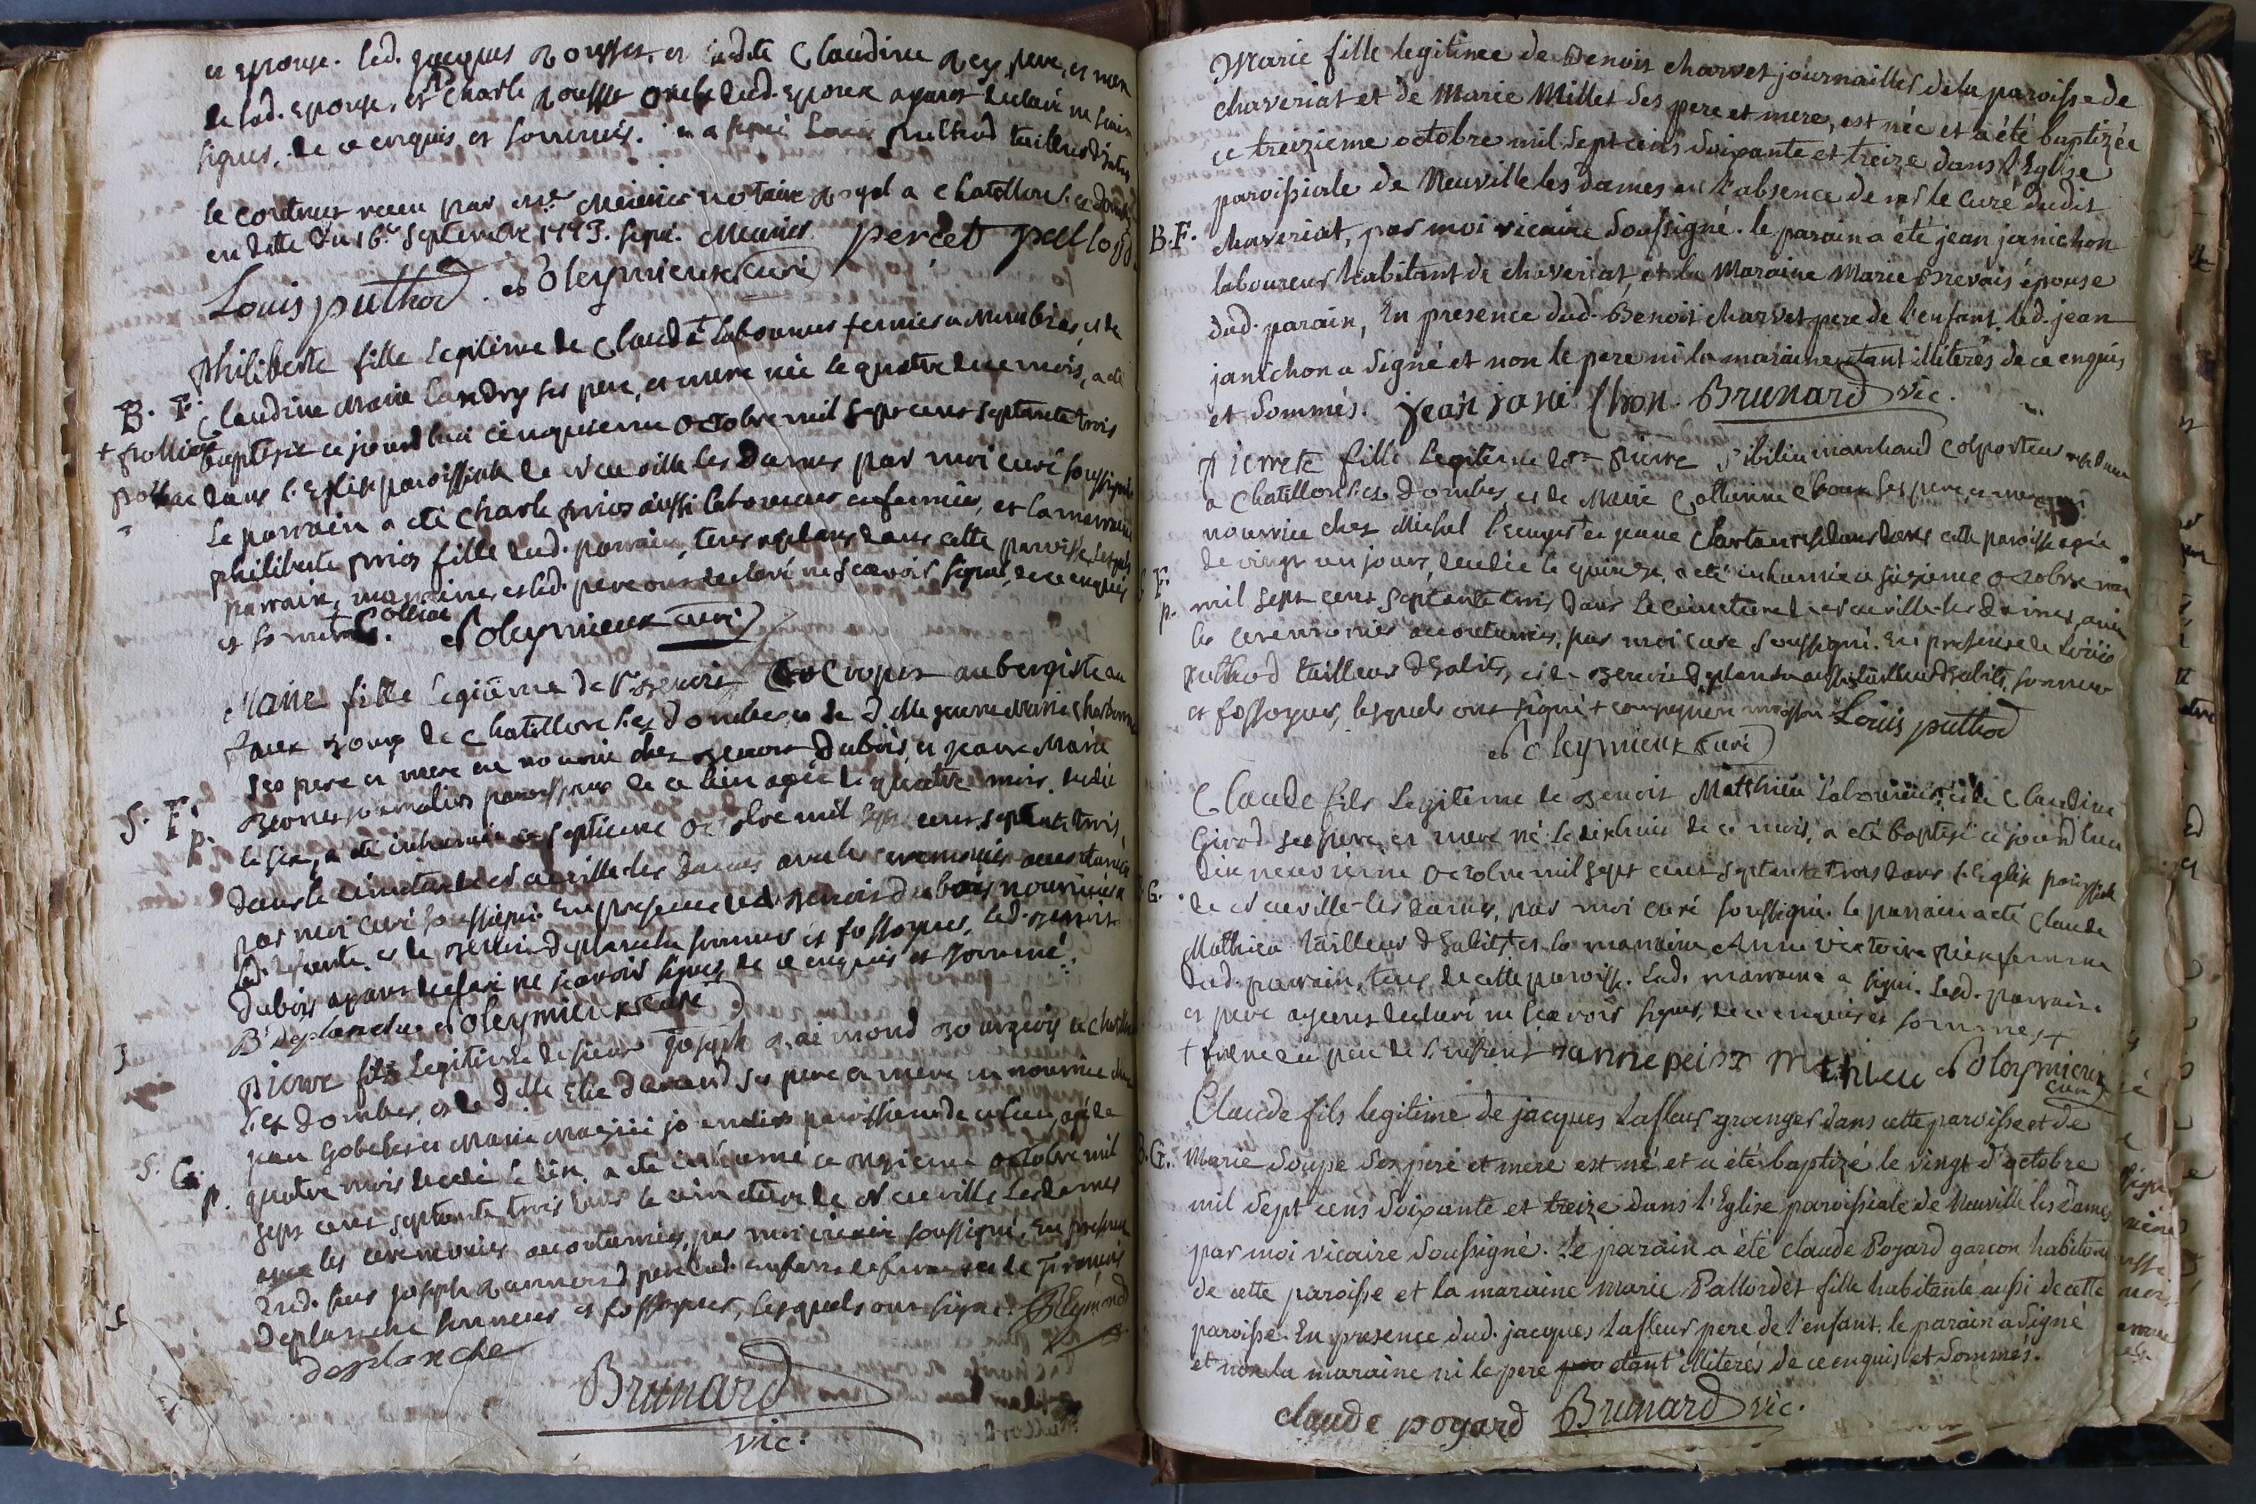 et epouse. led. jacques rousset, et ladite Claudine Rey pere, et mere
de lad. epouse, et Charle rousset oncle dud. epoux ayant declaré ne scavoir
signer, de ce enquis et sommés. en a signé Louis puthod tailleur d'habits
le contrat recu par me. Meunier notaire royal a Chatillon les dombes
en datte du 16e. Septembre 1773. signé. Meunier perced
Louis puthod. Doleymieux curé
philiberte fille legitime de Claude + laboureur fermier a et de
Claudine Marie Landry ses pere, et mere née le quatre de ce mois, a été
B. F.
+ pollier
baptisée ce jourd'hui cinquieme octobre mil sept cent septante trois
dans l'Eglise paroissiale de Neuville les Dames par moi curé soussigné
Le parrain a été Charle aussi laboureur en fermier, et la marraine
philiberte fille dud. parrain, tous residans dans cette paroisse, lesquels
parrain, marraine, et led. pere ont declaré ne scavoir signer, de ce enquis
et sommés. + pollier Doleymieux curé
Marie fille legitime de Sr. Benoit aubergiste au
faux bourg de Chatillon les Dombes et de d.elle jeanne Marie Charbonnet
ses pere et mere en nourrice chez Benoit Dubois, et jeanne Marie
journalier paroissiens de ce lieu agée de quatre mois, decedée
S. F.
p.
le six, a été inhumée ce septieme octobre mil sept cent septante trois,
dans le cimetiere de Neuville-les Dames avec les ceremonies accoutumées
par moi curé soussigné. En presence dud. Benoit dubois nourricier
de lad. defunte, et de Benoit Deplanche sonneur et fossoyeur, led. Benoit
Dubois ayant declaré ne scavoir signer, de ce enquis et sommé.
B deplanche Doleymieux curé
Pierre fils legitime de sieur joseph raimond bourgeois de Chatillon
les Dombes, et de d.elle ses pere et mere en nourrice chez
jean Gobet et Marie journalier paroissiens de ce lieu, agé de
S. G.
p.
quatre mois decedé le dix a été inhumé ce onzieme octobre mil
sept cent septante trois dans le cimetiere de Neuville les dames
avec les ceremonies accoutumées, par moi vicaire soussigné, En presence
dud. sieur joseph Raimond pere dud. enfant defunt et de François
Deplanche sonneur et fossoyeur, lesquels ont signé. Reymond
deplanche
Brunard
vic.
Marie fille legitime de Benoit charvet journaillier de la paroisse de
chaveriat et de Marie Millet ses pere et mere, est née et a été baptizée
ce treizieme octobre mil sept cens soixante et treize dans l'Eglise
paroissiale de Neuville les dames en l'absence de mr. le curé dudit
B. F.
chaveriat, par moi vicaire soussigné. le parain a été jean janichon
laboureur habitant de chaveriat, et la Maraine Marie Brevais épouse
dud. parain, En presence dud. Benoit charvet pere de l'enfant. led. jean
janichon a signé et non le pere ni la maraine etant illiterés de ce enquis
et sommés. jean jani chon. Brunard vic.
Pierrete fille legitime de Sr. pierre Sibilin marchand colporteur
a Chatillon les dombes, et de Marie Catherine ses pere et mere en
nourrice chez Michel + et jeane dans cette paroisse agée
F.
p.
de vingt un jours, decedée le quinze, a été inhumée ce sizieme octobre
mil sept cent septante trois dans le cimetiere de Neuville-les dames, avec
les ceremonies accoutumées, par moi curé soussigné. En presence de Louis
puthod tailleur d'habits, et de Benoit Deplanche aussi tailleur d'habits, sonneur
et fossoyeur, lesquels ont signé + Louis puthod
Doleymieux curé
Claude fils legitime de Benoit Matthieu laboureur, et de Claudine
Girod ses pere, et mere né le dix huit de ce mois, a été baptisé ce jourd'huy
dix neuvieme octobre mil sept cent septante trois dans l'Eglise paroissiale
G.
de Neuville-les dames, par moi curé soussigné. le parrain a été Claude
Mathieu tailleur d'habits + et la marraine Anne Victoire femme
dud. parrain, tous de cette paroisse. Lad. marraine a signé. Led. parrain
et pere ayant declaré ne scavoir signer, de ce enquis et sommés +
+ frere au pere de l'enfant Doleymieux
curé
Claude fils legitime de jacques Lafleur granger dans cette paroisse et de
B. G.
Marie Soupe ses pere et mere est né et a été baptizé le vingt d'octobre
mil sept cens soixante et treize dans l'Eglise paroissiale de Neuville les dames
par moi vicaire soussigné. le parain a été claude Pogard garcon habitant
de cette paroisse et la maraine marie Pallordet fille habitante aussi de cette
paroisse. En presence dud. jacques Lafleur pere de l'enfant. le parain a signé
et non la maraine ni le pere etant illiterés de ce enquis et sommés.
claude pogard Brunard vic.